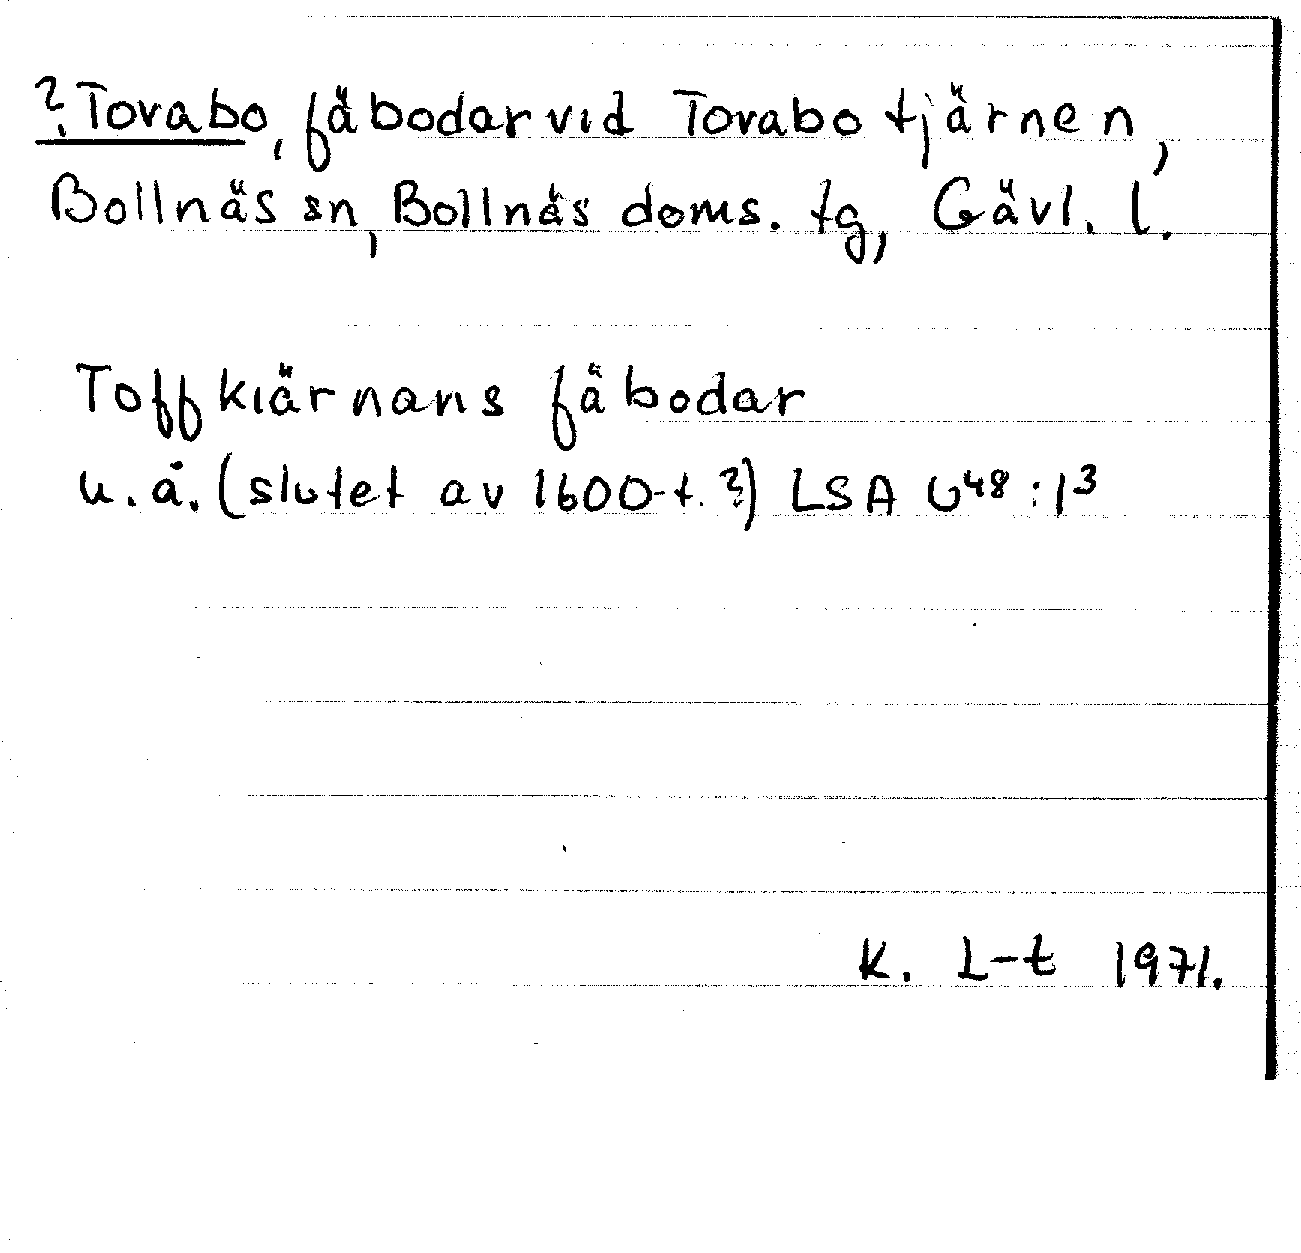 ?Tovabo, fäbodar vid Tovabotjärnen,
Bollnäs sn, Bollnäs doms. tg, Gävl. l.
Toffkiärnans fäbodar
u.å. (slutet av 1600-t.?) LSA U48:1³
K. L-t 1971.